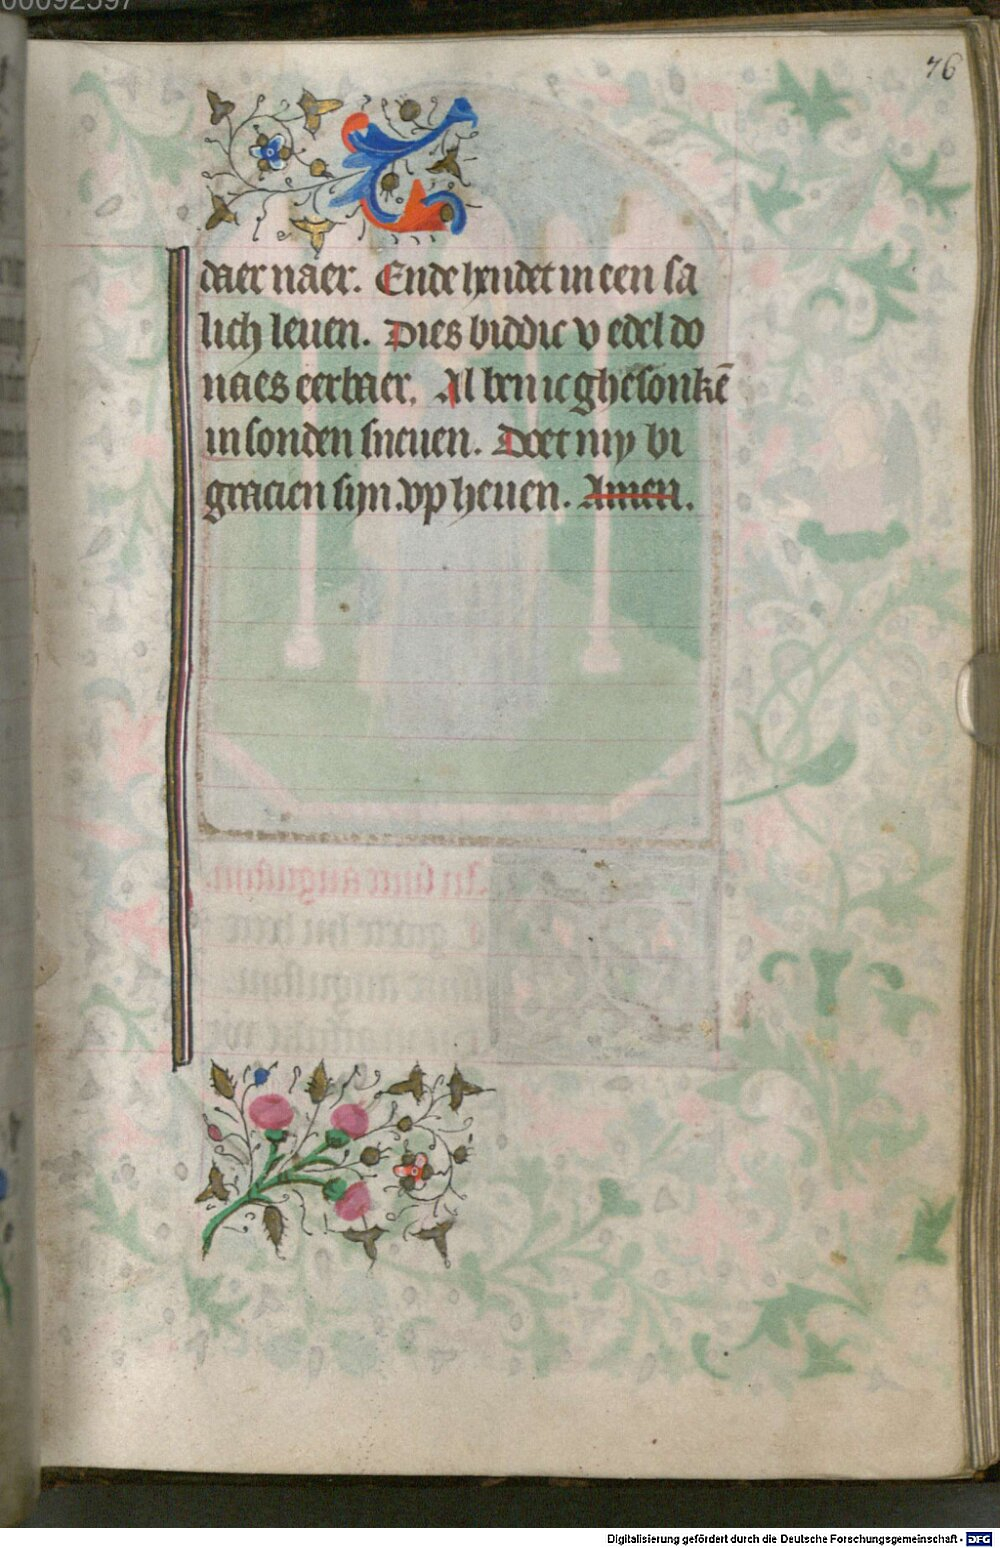 76
daer naer. Ende hendet in een sa
lich leuen. Dies biddic v edel do
naes eerbaer. Al ben ic ghesonkē
in sonden sneuen. Doet my bi
gracien sijn. vp heuen. Amen.
Digitalisierung gefördert durch die Deutsche Forschungsgemeinschaft - DFG